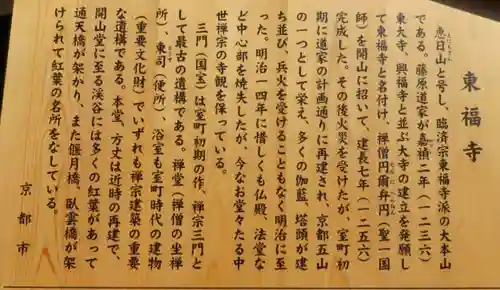 東福寺
恵日山と号し、臨済宗東福寺派の大本山
である。藤原道家が嘉禎二年（一二三六）
東大寺、興福寺と並ぶ大寺の建立を発願し
て東福寺と名付け、禅僧円爾弁円（聖一国
師）を開山に招いて、建長七年（一二五六）
完成した。その後火災を受けたが、室町初
期に道家の計画通りに再建され、京都五山
の一つとして栄え、多くの伽藍、塔頭が建
ち並び、兵火を受けることもなく明治に至
った。明治一四年に惜しくも仏殿、法堂な
ど中心部を焼失したが、今なお堂々たる中
世禅宗の寺観を保っている。
三門（国宝）は室町初期の作、禅宗三門と
して最古の遺構である。禅堂（禅僧の坐禅
所）、東司（便所）、浴室も室町時代の建物
（重要文化財）でいずれも禅宗建築の重要
な遺構である。本堂、方丈は近時の再建で、
開山堂に至る渓谷には多くの紅葉があって
通天橋が架かり、また偃月橋、臥雲橋が架
けられて紅葉の名所をなしている。
京都市